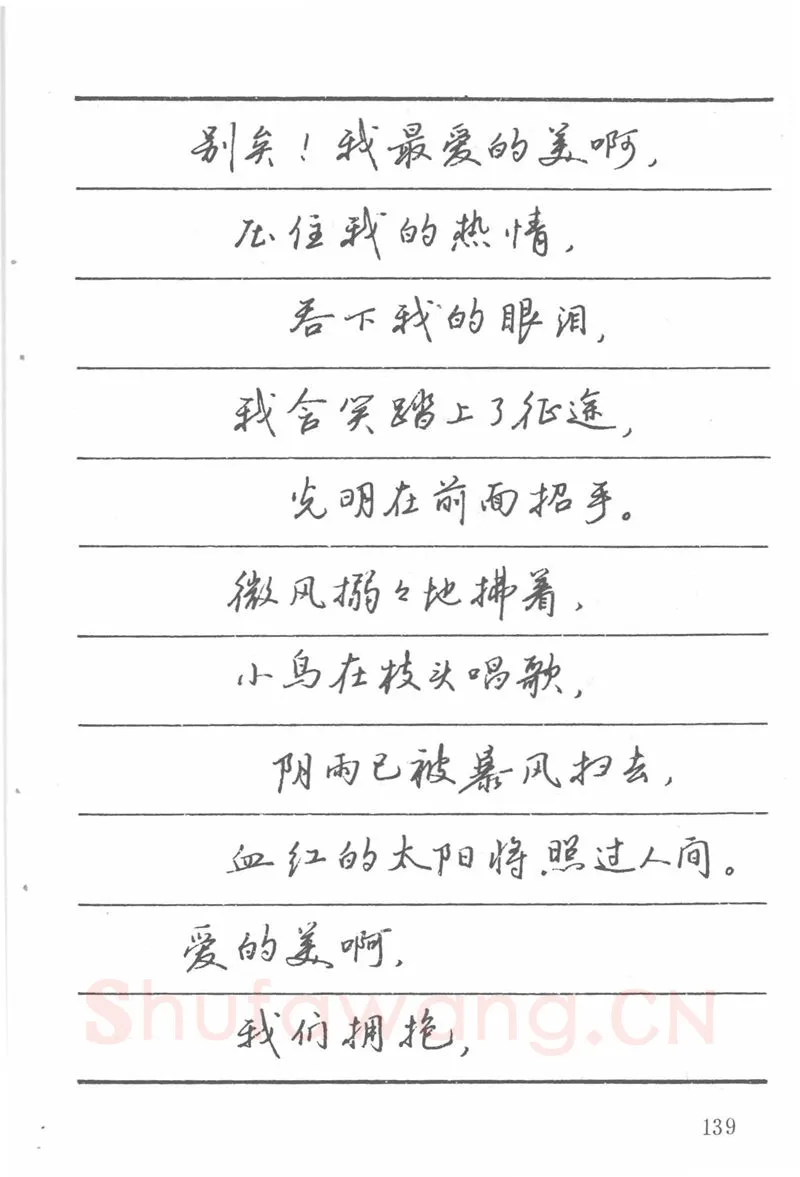 别矣！我最爱的美啊，
压住我的热情，
吞下我的眼泪，
我含笑踏上了征途，
光明在前面招手。
微风搦々地拂着，
小鸟在枝头唱歌，
阴雨已被暴风扫去，
血红的太阳将照过人间。
爱的美啊，
我们拥抱，
Shufawang.CN
139